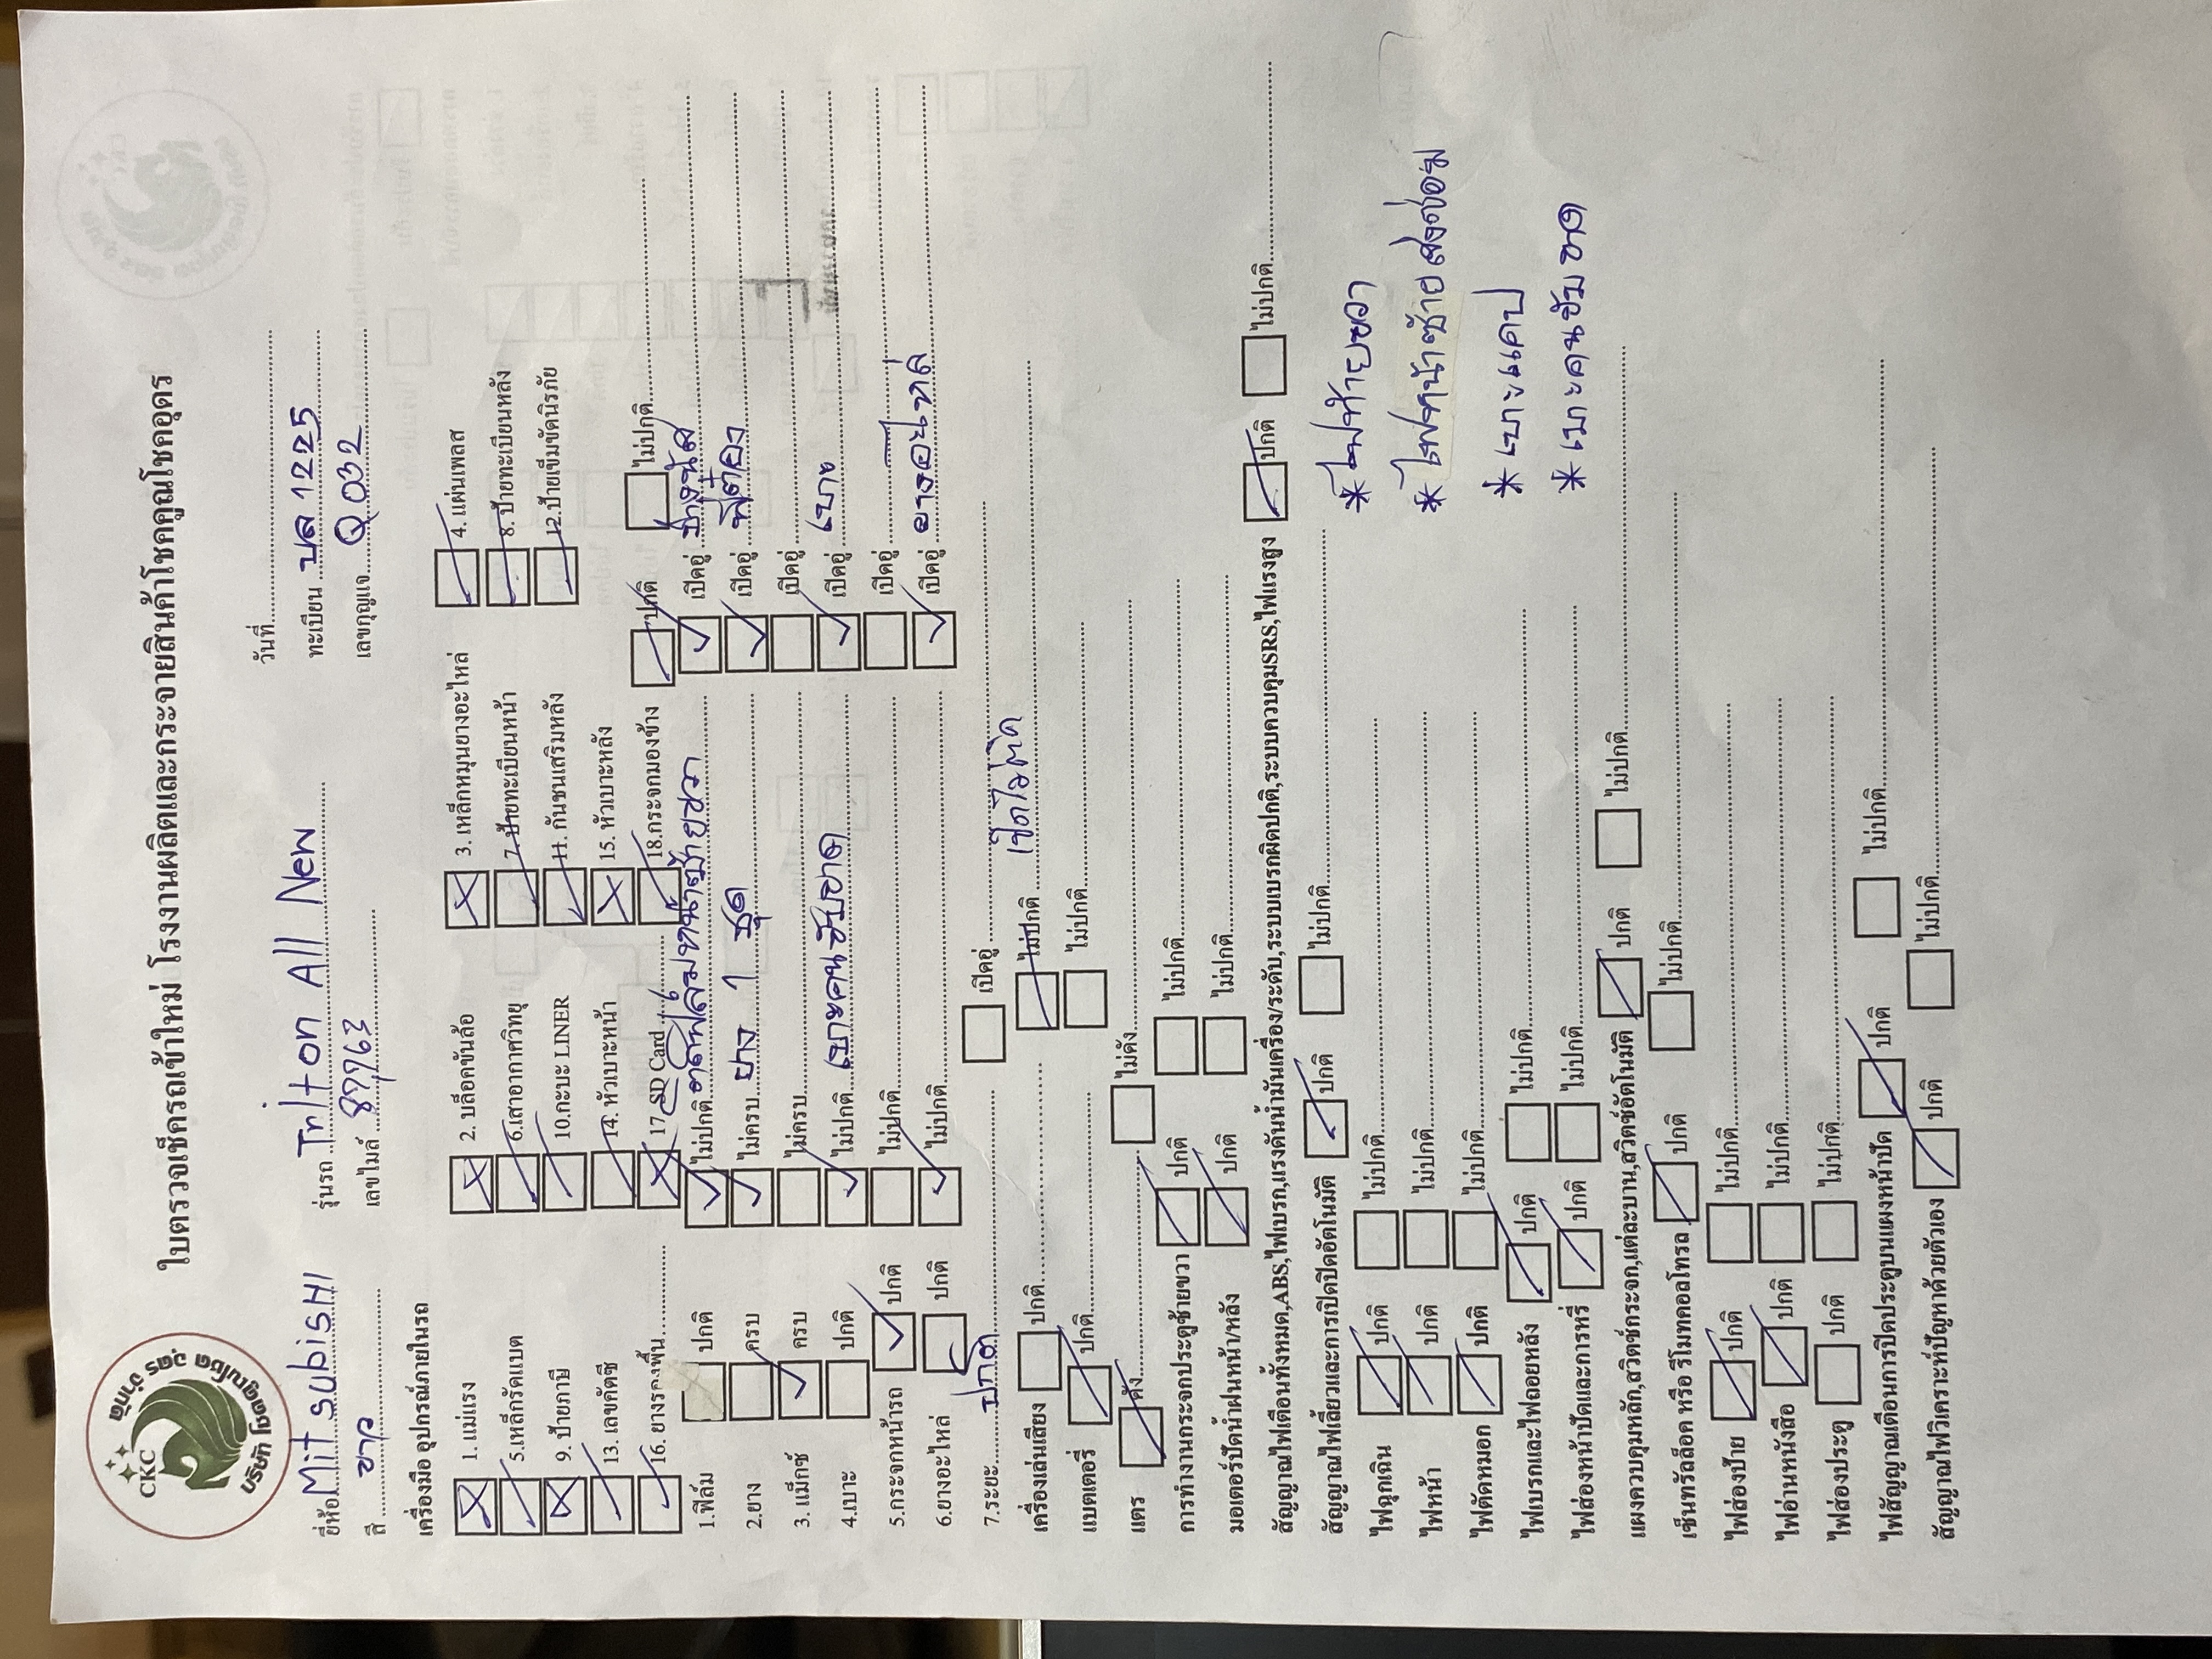 CKC
บริษัท โชคคูณโชค อุดร จำกัด
ใบตรวจเช็ครถเข้าใหม่ โรงงานผลิตและกระจายสินค้าโชคคูณโชคอุดร
วันที่
ยี่ห้อ MitsubisHI รุ่นรถ Triton All New ทะเบียน บล 1225
สี ขาว เลขไมล์ 87,763 เลขกุญแจ Q032
เครื่องมือ อุปกรณ์ภายในรถ
1. แม่แรง 2. บล็อคขันล้อ 3. เหล็กหมุนยางอะไหล่ 4. แผ่นเพลส
5.เหล็กรัดแบต 6.เสาอากาศวิทยุ 7.ป้ายทะเบียนหน้า 8. ป้ายทะเบียนหลัง
9. ป้ายภาษี 10.กะบะ LINER 11. กันชนเสริมหลัง 12.ป้ายเข็มขัดนิรภัย
13. เลขคัตซี 14. หัวเบาะหน้า 15. หัวเบาะหลัง
16. ยางรองพื้น 17.SD Card 18.กระจกมองข้าง ปกติ ไม่ปกติ
1.ฟิล์ม ปกติ ไม่ปกติ ติดฟิล์มหน้าซ้ายขวา เปิดอู่
2.ยาง ครบ ไม่ครบ ยาง 1 ชุด เปิดอู่
3. แม็กซ์ ครบ ไม่ครบ เปิดอู่
4.เบาะ ปกติ ไม่ปกติ เบาะคนขับขาด เปิดอู่ เบาะ
5.กระจกหน้ารถ ปกติ ไม่ปกติ เปิดอู่
6.ยางอะไหล่ ปกติ ไม่ปกติ เปิดอู่ ยางอะไหล่
7.ระยะ ปกติ เปิดอู่
เครื่องเล่นเสียง ปกติ ไม่ปกติ เปิดไม่ติด
แบตเตอรี่ ปกติ ไม่ปกติ
แตร ดัง ไม่ดัง
การทำงานกระจกประตูซ้ายขวา ปกติ ไม่ปกติ
มอเตอร์ปัดน้ำฝนหน้า/หลัง ปกติ ไม่ปกติ
สัญญาณไฟเตือนทั้งหมด,ABS,ไฟเบรก,แรงดันน้ำมันเครื่อง/ระดับ,ระบบเบรกผิดปกติ,ระบบควบคุมSRS,ไฟแรงสูง ปกติ ไม่ปกติ
สัญญาณไฟเลี้ยวและการเปิดปิดอัตโนมัติ ปกติ ไม่ปกติ
ไฟฉุกเฉิน ปกติ ไม่ปกติ
* ไฟท้ายขวา
ไฟหน้า ปกติ ไม่ปกติ
* ไฟหน้าซ้ายส่งซ่อม
ไฟตัดหมอก ปกติ ไม่ปกติ
* เบาะแคป
ไฟเบรกและไฟถอยหลัง ปกติ ไม่ปกติ
* เบาะคนขับขาด
ไฟส่องหน้าปัดและการหรี่ ปกติ ไม่ปกติ
แผงควบคุมหลัก,สวิตช์กระจก,แต่ละบาน,สวิตช์อัตโนมัติ ปกติ ไม่ปกติ
เซ็นทรัลล็อค หรือ รีโมทคอลโทรล ปกติ ไม่ปกติ
ไฟส่องป้าย ปกติ ไม่ปกติ
ไฟอ่านหนังสือ ปกติ ไม่ปกติ
ไฟส่องประตู ปกติ ไม่ปกติ
ไฟสัญญาณเตือนการปิดประตูบนแผงหน้าปัด ปกติ ไม่ปกติ
สัญญาณไฟวิเคราะห์ปัญหาด้วยตัวเอง ปกติ ไม่ปกติ